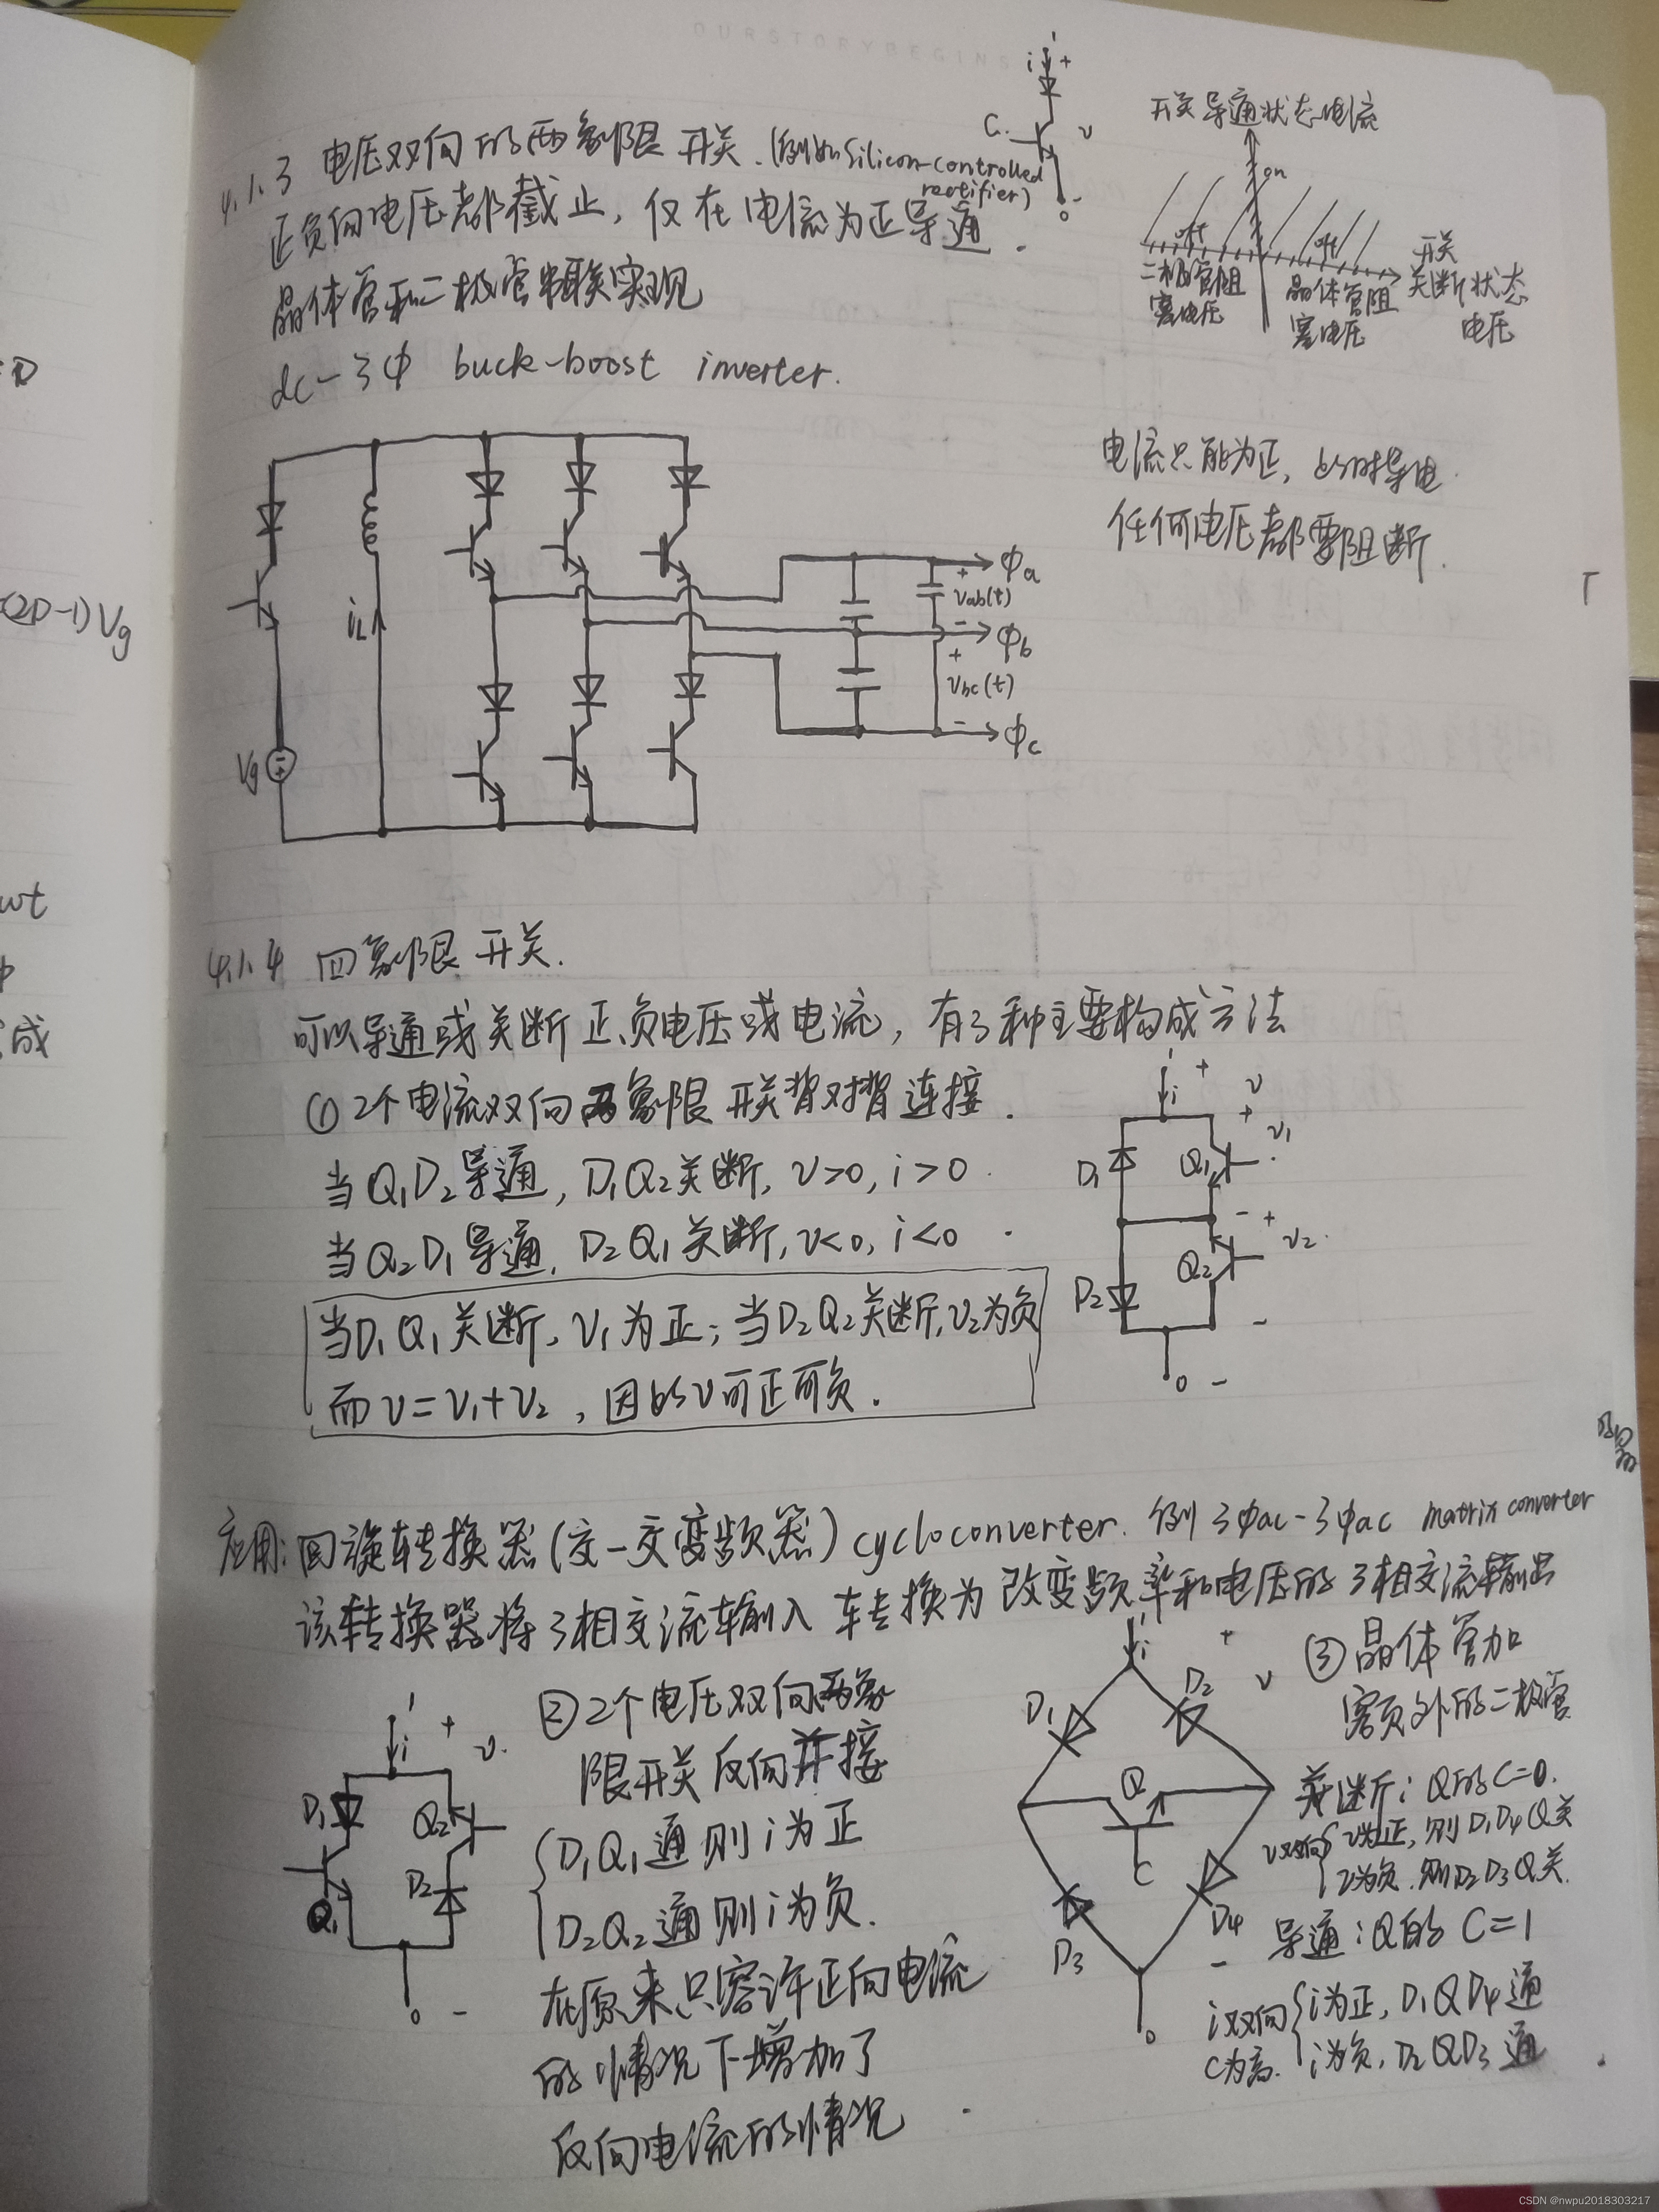 OURSTORYBEGINS
4.1.3 电压双向的两象限开关.(例如Silicon-controlled
rectifier)
正负向电压都截止,仅在电流为正导通.
晶体管和二极管串联实现
dc-3ф buck-boost inverter.
i +
C.
v
-
开关导通状态电流
on
off
off
开关
关断状态
电压
二极管阻
塞电压
晶体管阻
塞电压
电流只能为正,此时导电.
任何电压都要阻断.
iL
Vg
фa
+
vab(t)
-
фb
+
vbc(t)
-
фc
=D
(2D-1)Vg
wt
成
4.1.4 四象限开关.
可以导通或关断正负电压或电流,有3种主要构成方法
①2个电流双向两象限开关背对背连接.
当Q1D2导通,D1Q2关断,v>0,i>0.
当Q2D1导通,D2Q1关断,v<0,i<0.
当D1Q1关断,v1为正;当D2Q2关断,v2为负
而v=v1+v2,因此v可正可负.
i + v
+ v1
D1 Q1
- +
v2
D2 Q2
-
-
应用:回旋转换器(交-交变频器)cycloconverter.例3фac-3фac matrix converter
该转换器将3相交流输入转换为改变频率和电压的3相交流输出
②2个电压双向两象
限开关反向并接
D1Q1通则i为正
D2Q2通则i为负.
在原来只容许正向电流
的情况下增加了
反向电流的情况
i + v.
D1 Q2
Q1 D2
-
③晶体管加
额外的二极管
i + v
D1 D2
Q
C
D3 D4
-
关断:Q的C=0.
v双向 v为正,则D1D4Q关
v为负.则D2D3Q关.
导通:Q的C=1
i双向 i为正,D1QD4通
C为高. i为负,D2QD3通
CSDN @nwpu2018303217